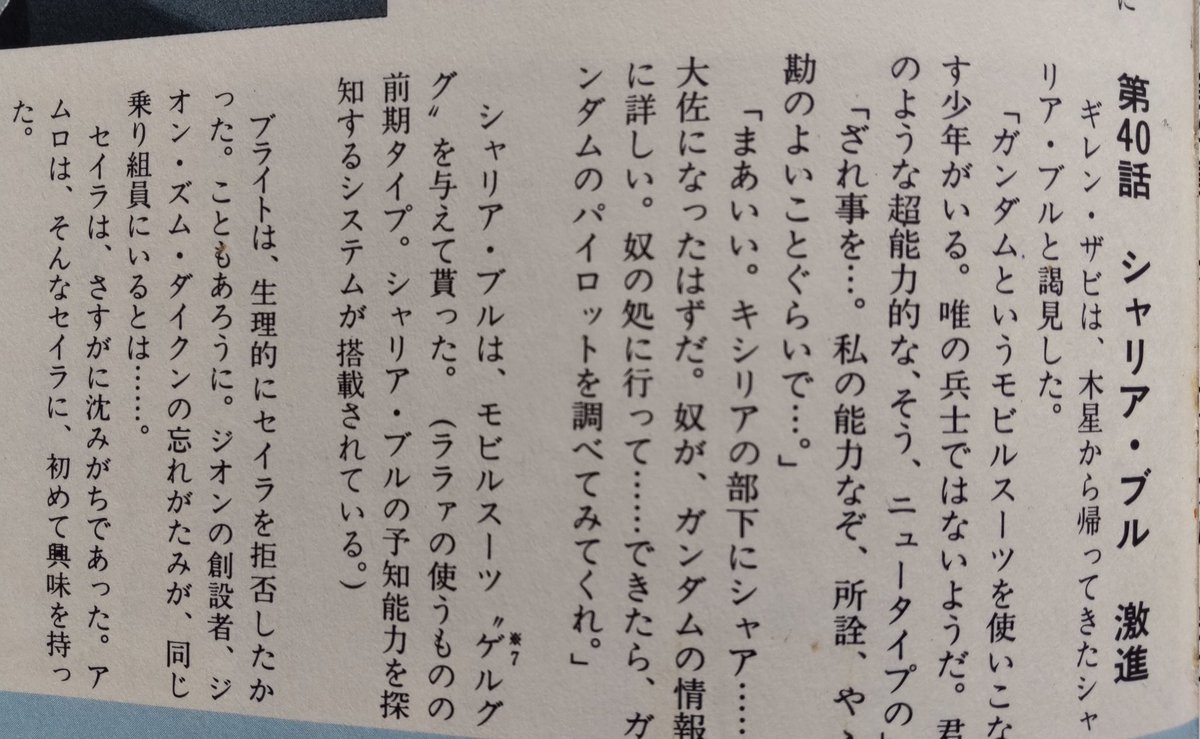 に
第40話　シャリア・ブル　激進
ギレン・ザビは、木星から帰ってきたシャ
リア・ブルと謁見した。
「ガンダムというモビルスーツを使いこな
す少年がいる。唯の兵士ではないようだ。君
のような超能力的な、そう、ニュータイプの」
「ざれ事を…。私の能力なぞ、所詮、や
勘のよいことぐらいで…。」
「まあいい。キシリアの部下にシャア……
大佐になったはずだ。奴が、ガンダムの情報
に詳しい。奴の処に行って……できたら、ガ
ンダムのパイロットを調べてみてくれ。」
シャリア・ブルは、モビルスーツ〝ゲルグ
※7
グ〟を与えて貰った。（ララァの使うものの
前期タイプ。シャリア・ブルの予知能力を探
知するシステムが搭載されている。）
ブライトは、生理的にセイラを拒否したか
った。こともあろうに。ジオンの創設者、ジ
オン・ズム・ダイクンの忘れがたみが、同じ
乗り組員にいるとは……。
セイラは、さすがに沈みがちであった。ア
ムロは、そんなセイラに、初めて興味を持っ
た。